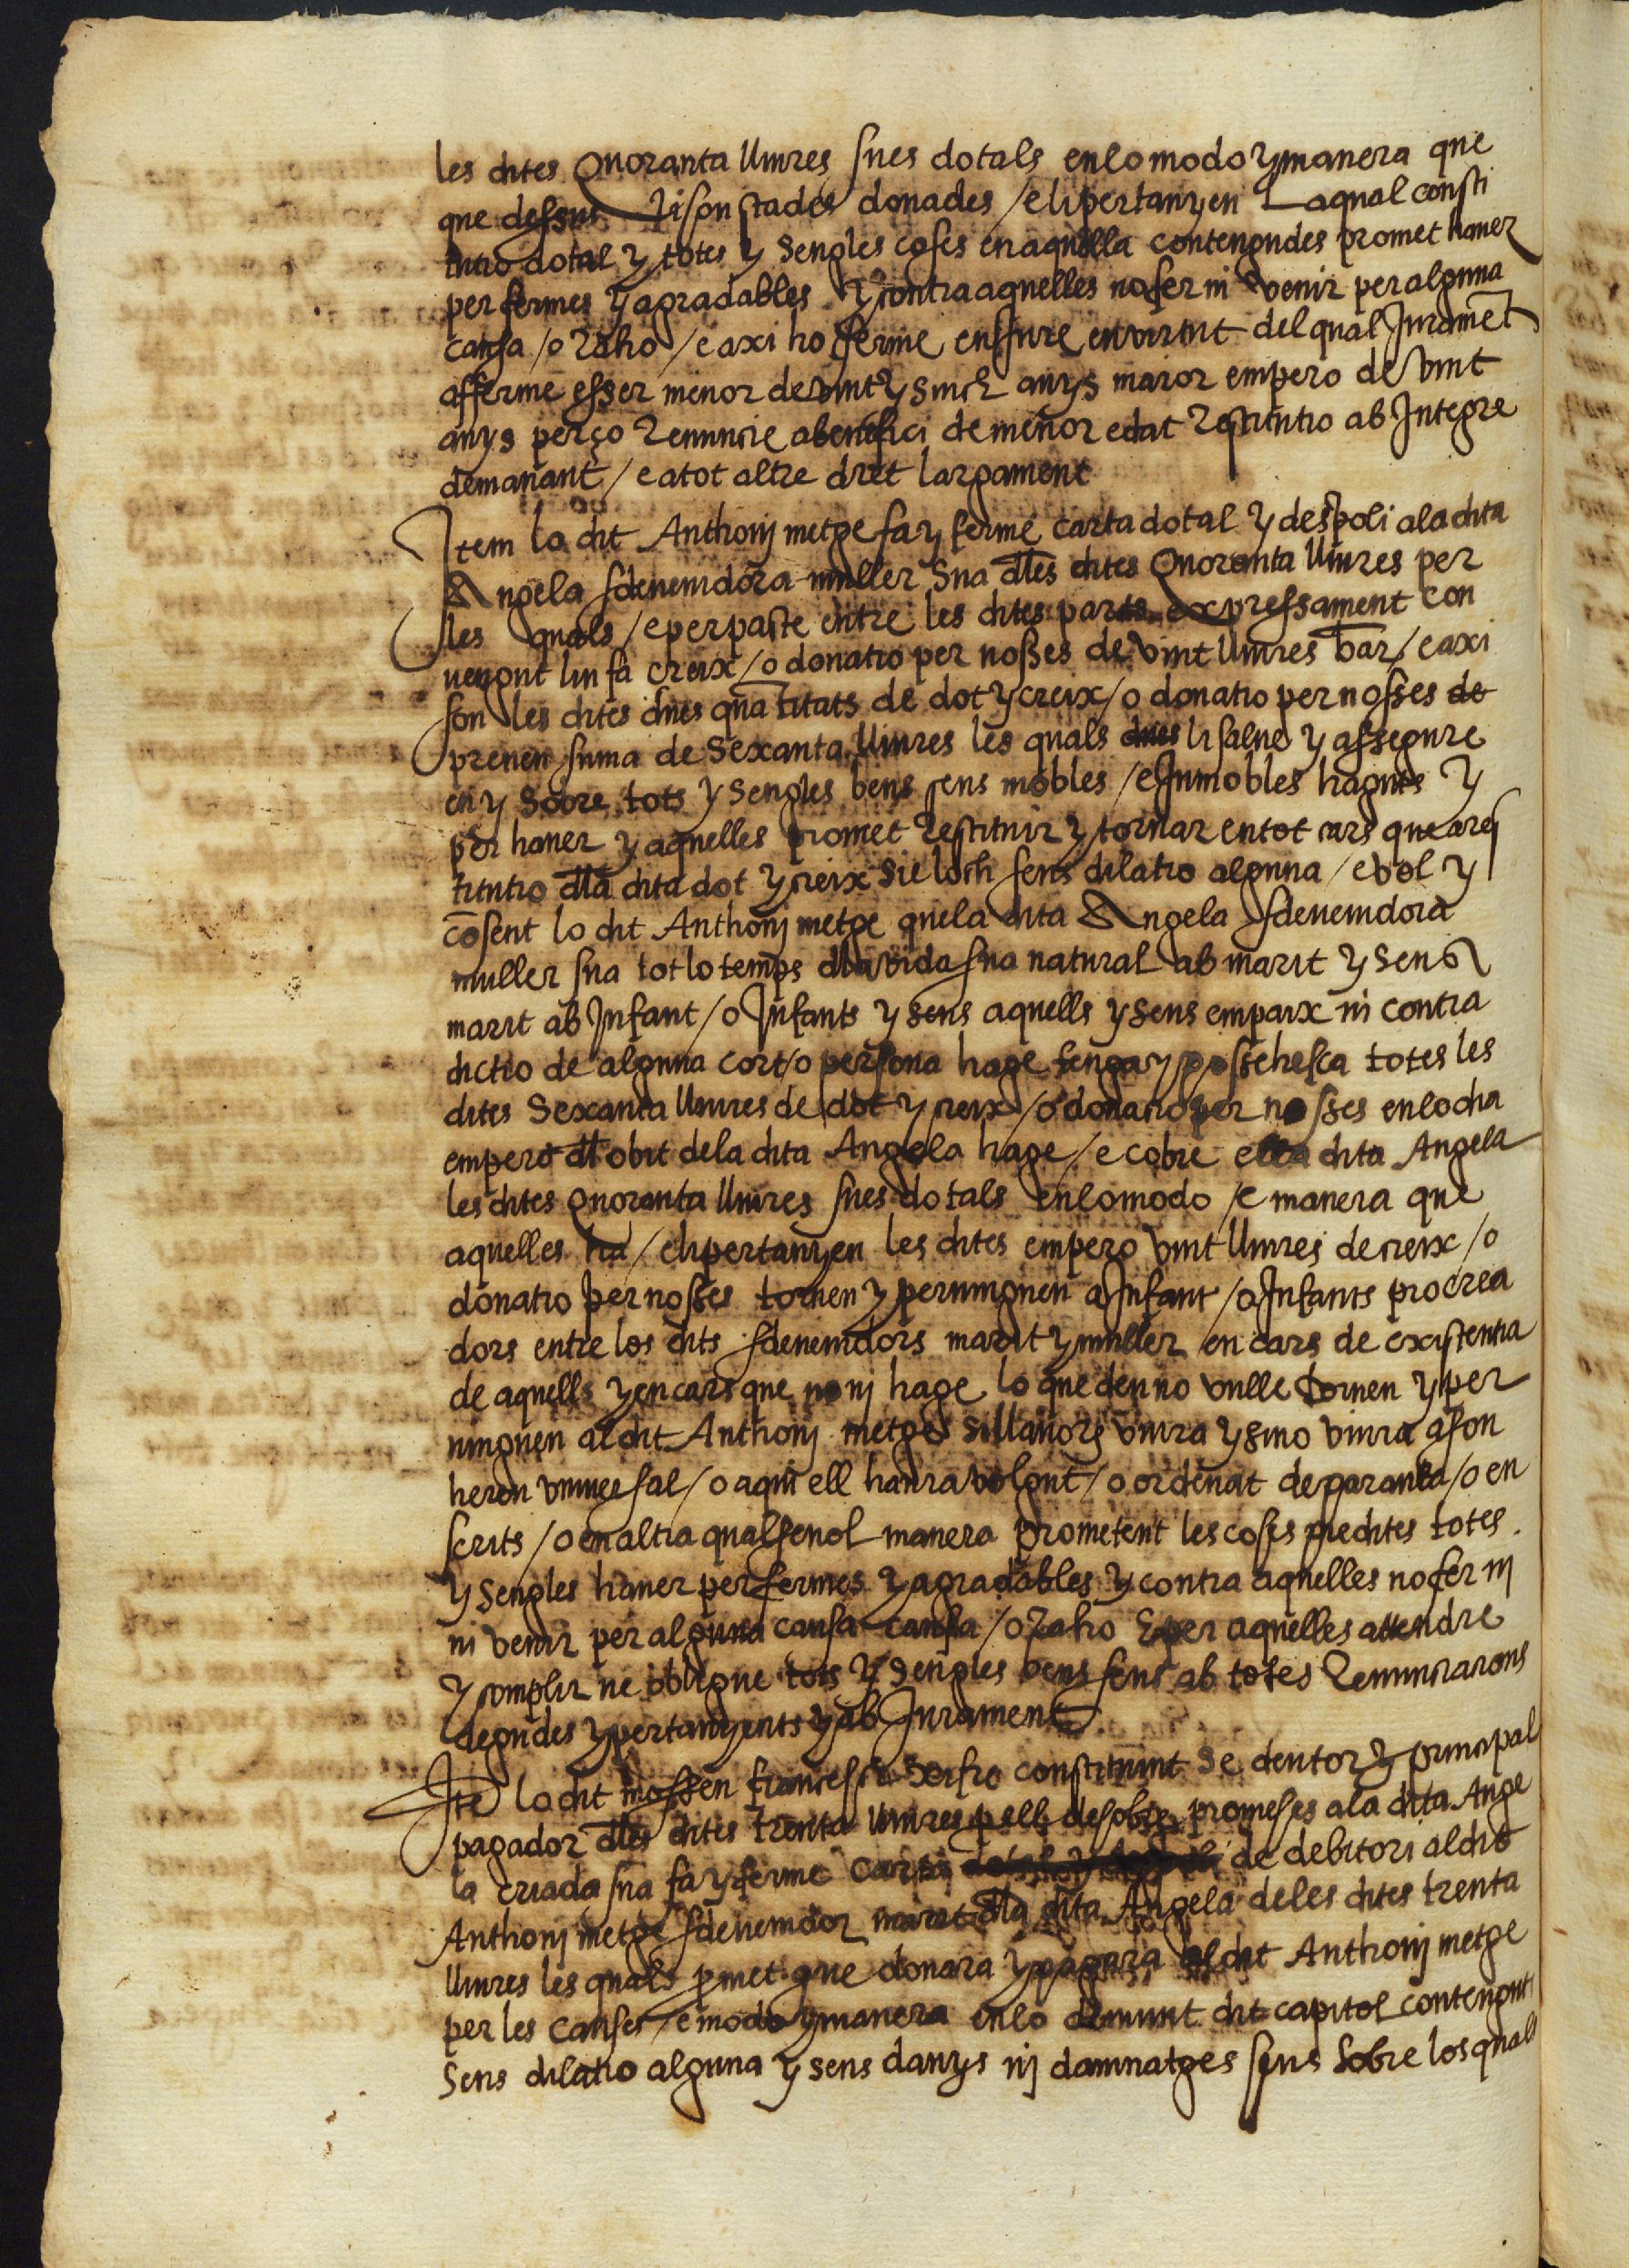 les dites Quoranta lliures sues dotals en lo modo y manera que
que dessus li son stades donades / e li pertanyen La qual consti
tutio dotal y totes y sengles coses en aquella contengudes promet hauer
per fermes y agradables y contra aquelles no fer ni venir per alguna
causa / o raho / e axi ho ferme en ssure en virtut del qual Jurament
afferme esser menor de vint y sinch anys maior empero de vint
anys perço renuncie a benefici de menor edat restitutio ab Integre
demanant / e a tot altre dret largament
Item lo dit Anthonj metge fa y ferme carta dotal y despoli ala dita
Angela sdeuenidora muller sua dles dites Quoranta lliures per
les quals / e per paste entre les dites parts expressament con
uengut lin fa creix / o donatio per nosses de vint lliures bar / e axi
son les dites dues quatitats de dot y creix / o donatio per nosses de
prenen suma de Sexanta lliures les quals dues li salue y assegure
en y sobre tots y sengles bens sens mobles / e Inmobles haguts y
per hauer y aquelles promet restituir y tornar en tot cars que a res
titutio dla dita dot y creix sie loch sens dilatio alguna / e vol y
cosent lo dit Anthonj metge que la dita Angela sdeuenidora
muller sua tot lo temps dla vida sua natural ab marit y sens
marit ab Infant / o Infants y sens aquells y sens empaix ni contra
dictio de alguna cort / o persona hage tenga y possehesca totes les
dites Sexanta lliures de dot y creix / o donatio per nosses en lo dia
empero dl obit dela dita Angela hage / e cobre ella dita Angela
les dites Quoranta lliures sues dotals en lo modo / e manera que
aquelles ha / e li pertanyen les dites empero vint lliures de creix / o
donatio per nosses tornen y peruinguen a Infant / o Infants procrea
dors entre los dits sdeuenidors marit y muller en cars de existentia
de aquells y en cars que no nj hage lo que deu no vulle tornen y per
uinguen al dit Anthonj metge si llauors viura y sino viura a son
hereu vniuersal / o a qui ell haura volgut / o ordenat de paraula / o en
scrits / o en altra qualseuol manera prometent les coses predites totes
y sengles hauer per fermes y agradables y contra aquelles no fer nj
ni venir per alguna causa causa / o raho E per aquelles attendre
y complir ne obligue tots y sengles bens sens ab totes renunciacions
degudes y pertanyents y ab Jurament
Ite lo dit mossen francesch constituint se deutor y principal
pagador dles dites trenta lliures p ell desobre promeses ala dita Ange
la criada sua fa y ferme carta de debitori al dit
Anthonj metge sdeuenidor marit dla dita Angela deles dites trenta
lliures les quals pmet que donara y pagara al dit Anthonj metge
per les causes / e modo y manera en lo demunt dit capitol contengut
Sens dilatio alguna y sens danys nj damnatges seus Sobre los quals